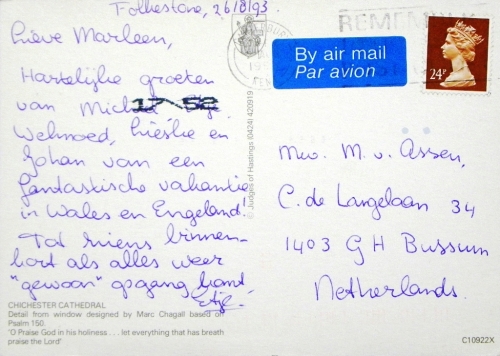 Folkestone, 26/8/93
Lieve Marleen,
Hartelijke groeten
van
17\52
Welmoed, Lieske en
Johan van een
fantastische vakantie
in Wales en Engeland!
Tot ziens binnen-
kort als alles weer
"gewoon" op gang komt,
REMEMBER
By air mail
Par avion
24P
Mw. M. v. Assen,
C. de Langelaan 34
1403 GH Bussum
Netherlands.
© Judges of Hastings (0424) 420919
CHICHESTER CATHEDRAL
Detail from window designed by Marc Chagall based on
Psalm 150.
"O Praise God in his holiness . . . let everything that has breath
praise the Lord'
C10922X